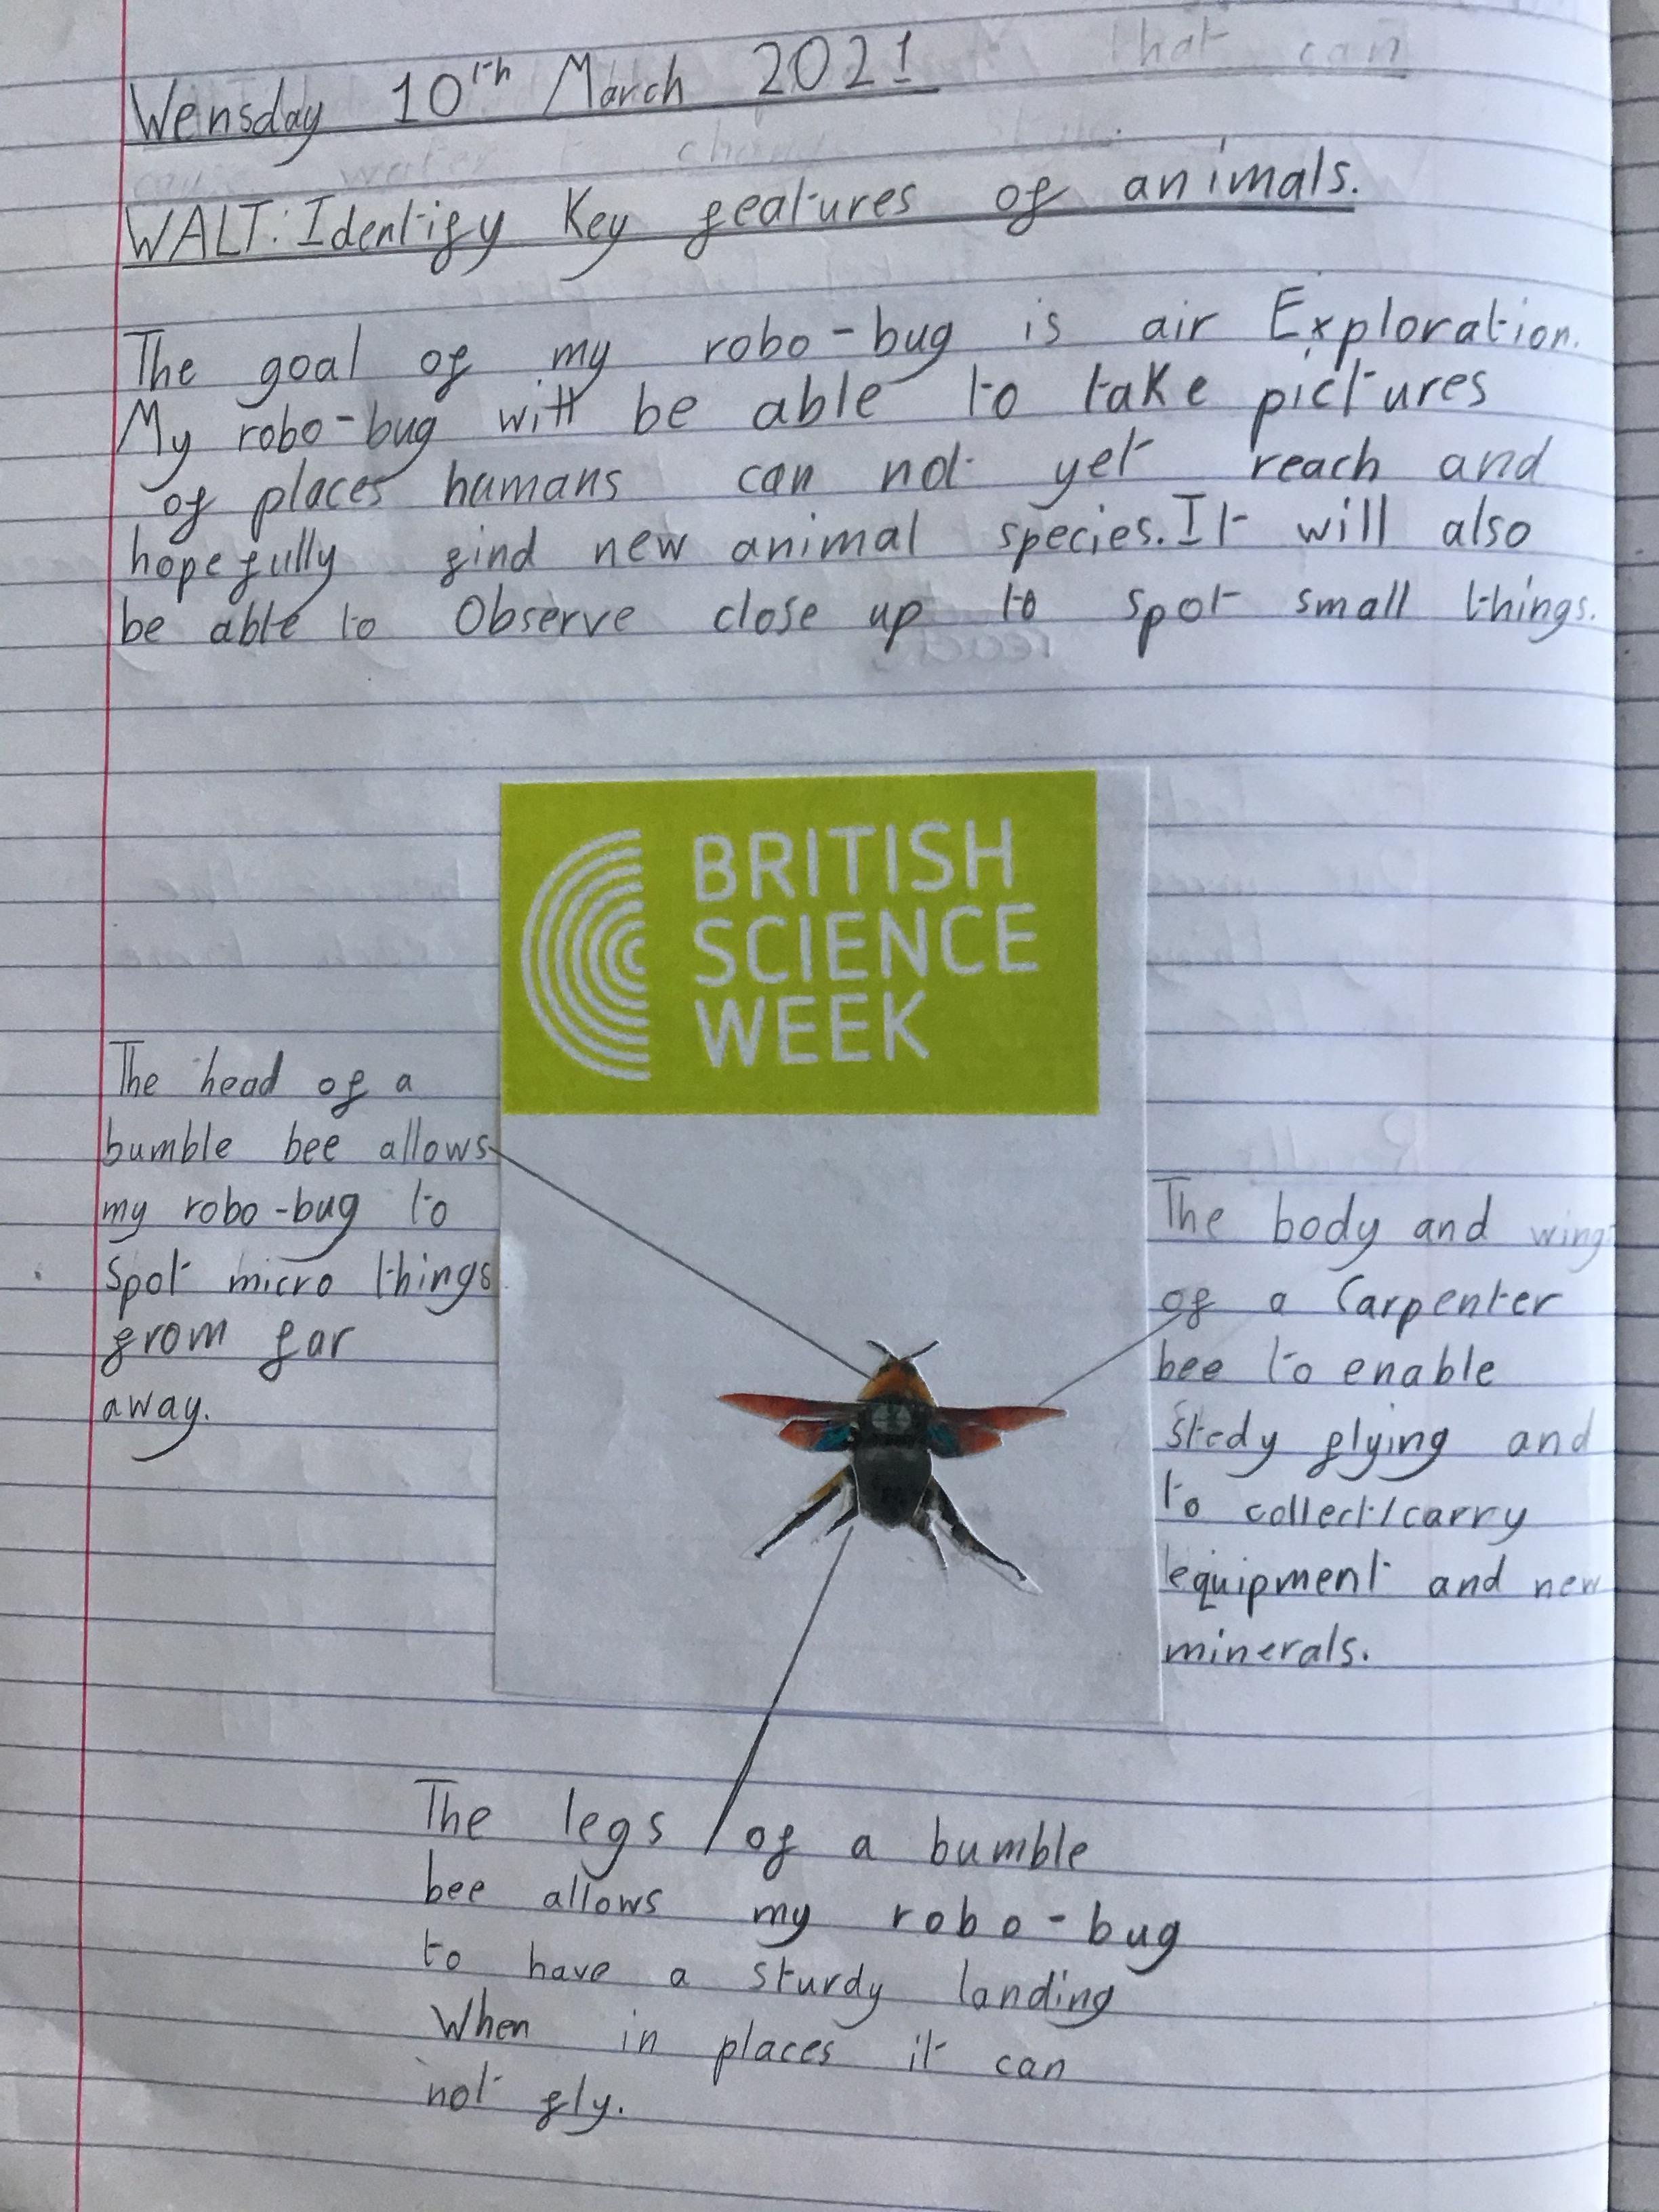 Wensday 10th March 2021
WALT: Identify Key features of animals.
The goal of my robo-bug is air Exploration.
My robo-bug will be able to take pictures
of places humans can not yet reach and
hopefully find new animal species. It will also
be able to Observe close up to spot small things.
BRITISH
SCIENCE
WEEK
The head of a
bumble bee allows
my robo-bug to
spot micro things
from far
away.
The body and wing
of a Carpenter
bee to enable
stedy flying and
to collect/carry
equipment and new
minerals.
The legs of a bumble
bee allows my robo-bug
to have a sturdy landing
When in places it can
not fly.